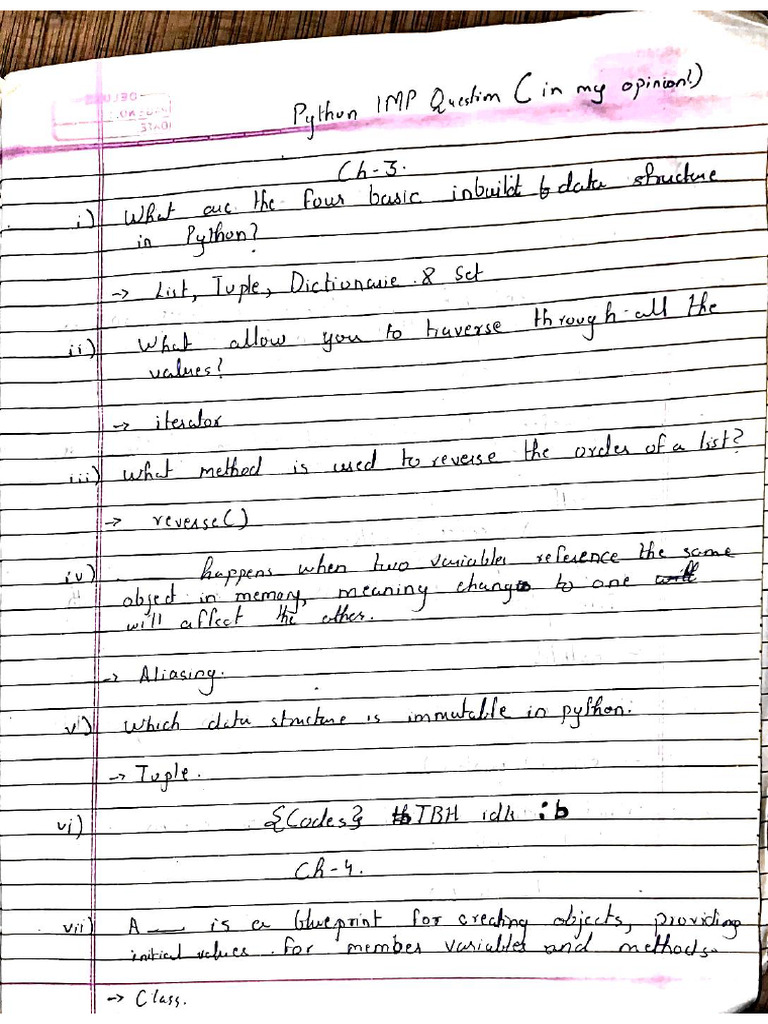 Python IMP Question (in my opinion!)
Ch-3.
i) What are the four basic inbuild data structure
in Python?
-> List, Tuple, Dictionarie & Set
ii) What allow you to traverse through all the
values?
-> iterator
iii) What method is used to reverse the order of a list?
-> reverse()
iv) ______ happens when two variables reference the same
object in memory, meaning change to one
will affect the other.
-> Aliasing.
v) Which data structure is immutable in python.
-> Tuple.
vi) {Codes} TBH idk :b
Ch-4.
vii) A ___ is a blueprint for creating objects, providing
initial values for member variables and methods.
-> Class.